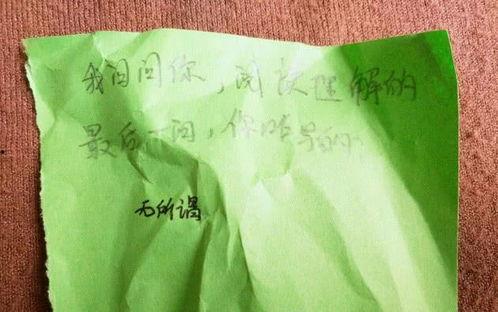 我问问你，阅读理解的
最后一问，你咋写的
无所谓